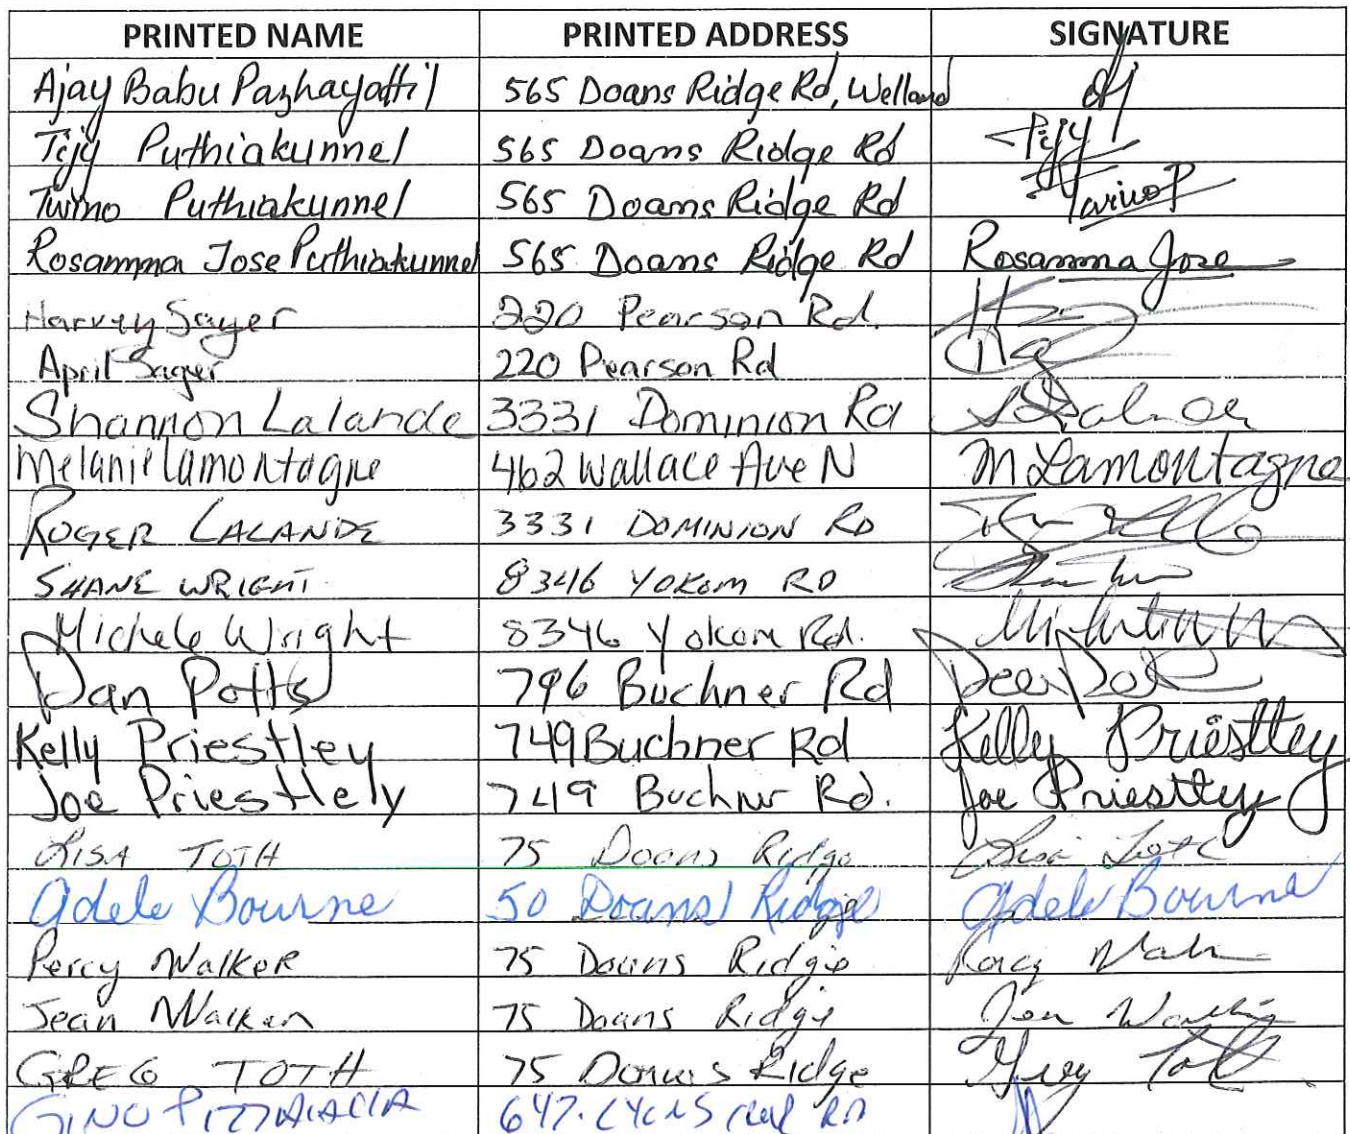 PRINTED NAME PRINTED ADDRESS SIGNATURE
Ajay Babu Pazhayattil 565 Doans Ridge Rd, Welland
Tijy Puthiakunnel 565 Doans Ridge Rd Tijy
Puthiakunnel 565 Doans Ridge Rd
Rosamma Jose Puthiakunnel 565 Doans Ridge Rd Rosamma Jose
Harvey Sayer 220 Pearson Rd.
April Sayer 220 Pearson Rd
Shannon Lalande 3331 Dominion Rd
Melanie Lamontagne 462 Wallace Ave N M Lamontagne
ROGER LALANDE 3331 DOMINION RD
SHANE WRIGHT 8346 YOKOM RD
Michele Wright 8346 Yokom Rd.
Dan Potts 796 Buchner Rd
Kelly Priestley 749 Buchner Rd Kelly Priestley
Joe Priestlely 749 Buchner Rd. Joe Priestley
LISA TOTH 75 Doans Ridge Lisa Toth
Adele Bourne 50 Doans Ridge Adele Bourne
Percy Walker 75 Doans Ridge
Jean Walker 75 Doans Ridge
GREG TOTH 75 Doans Ridge Greg Toth
GINO 647 RD